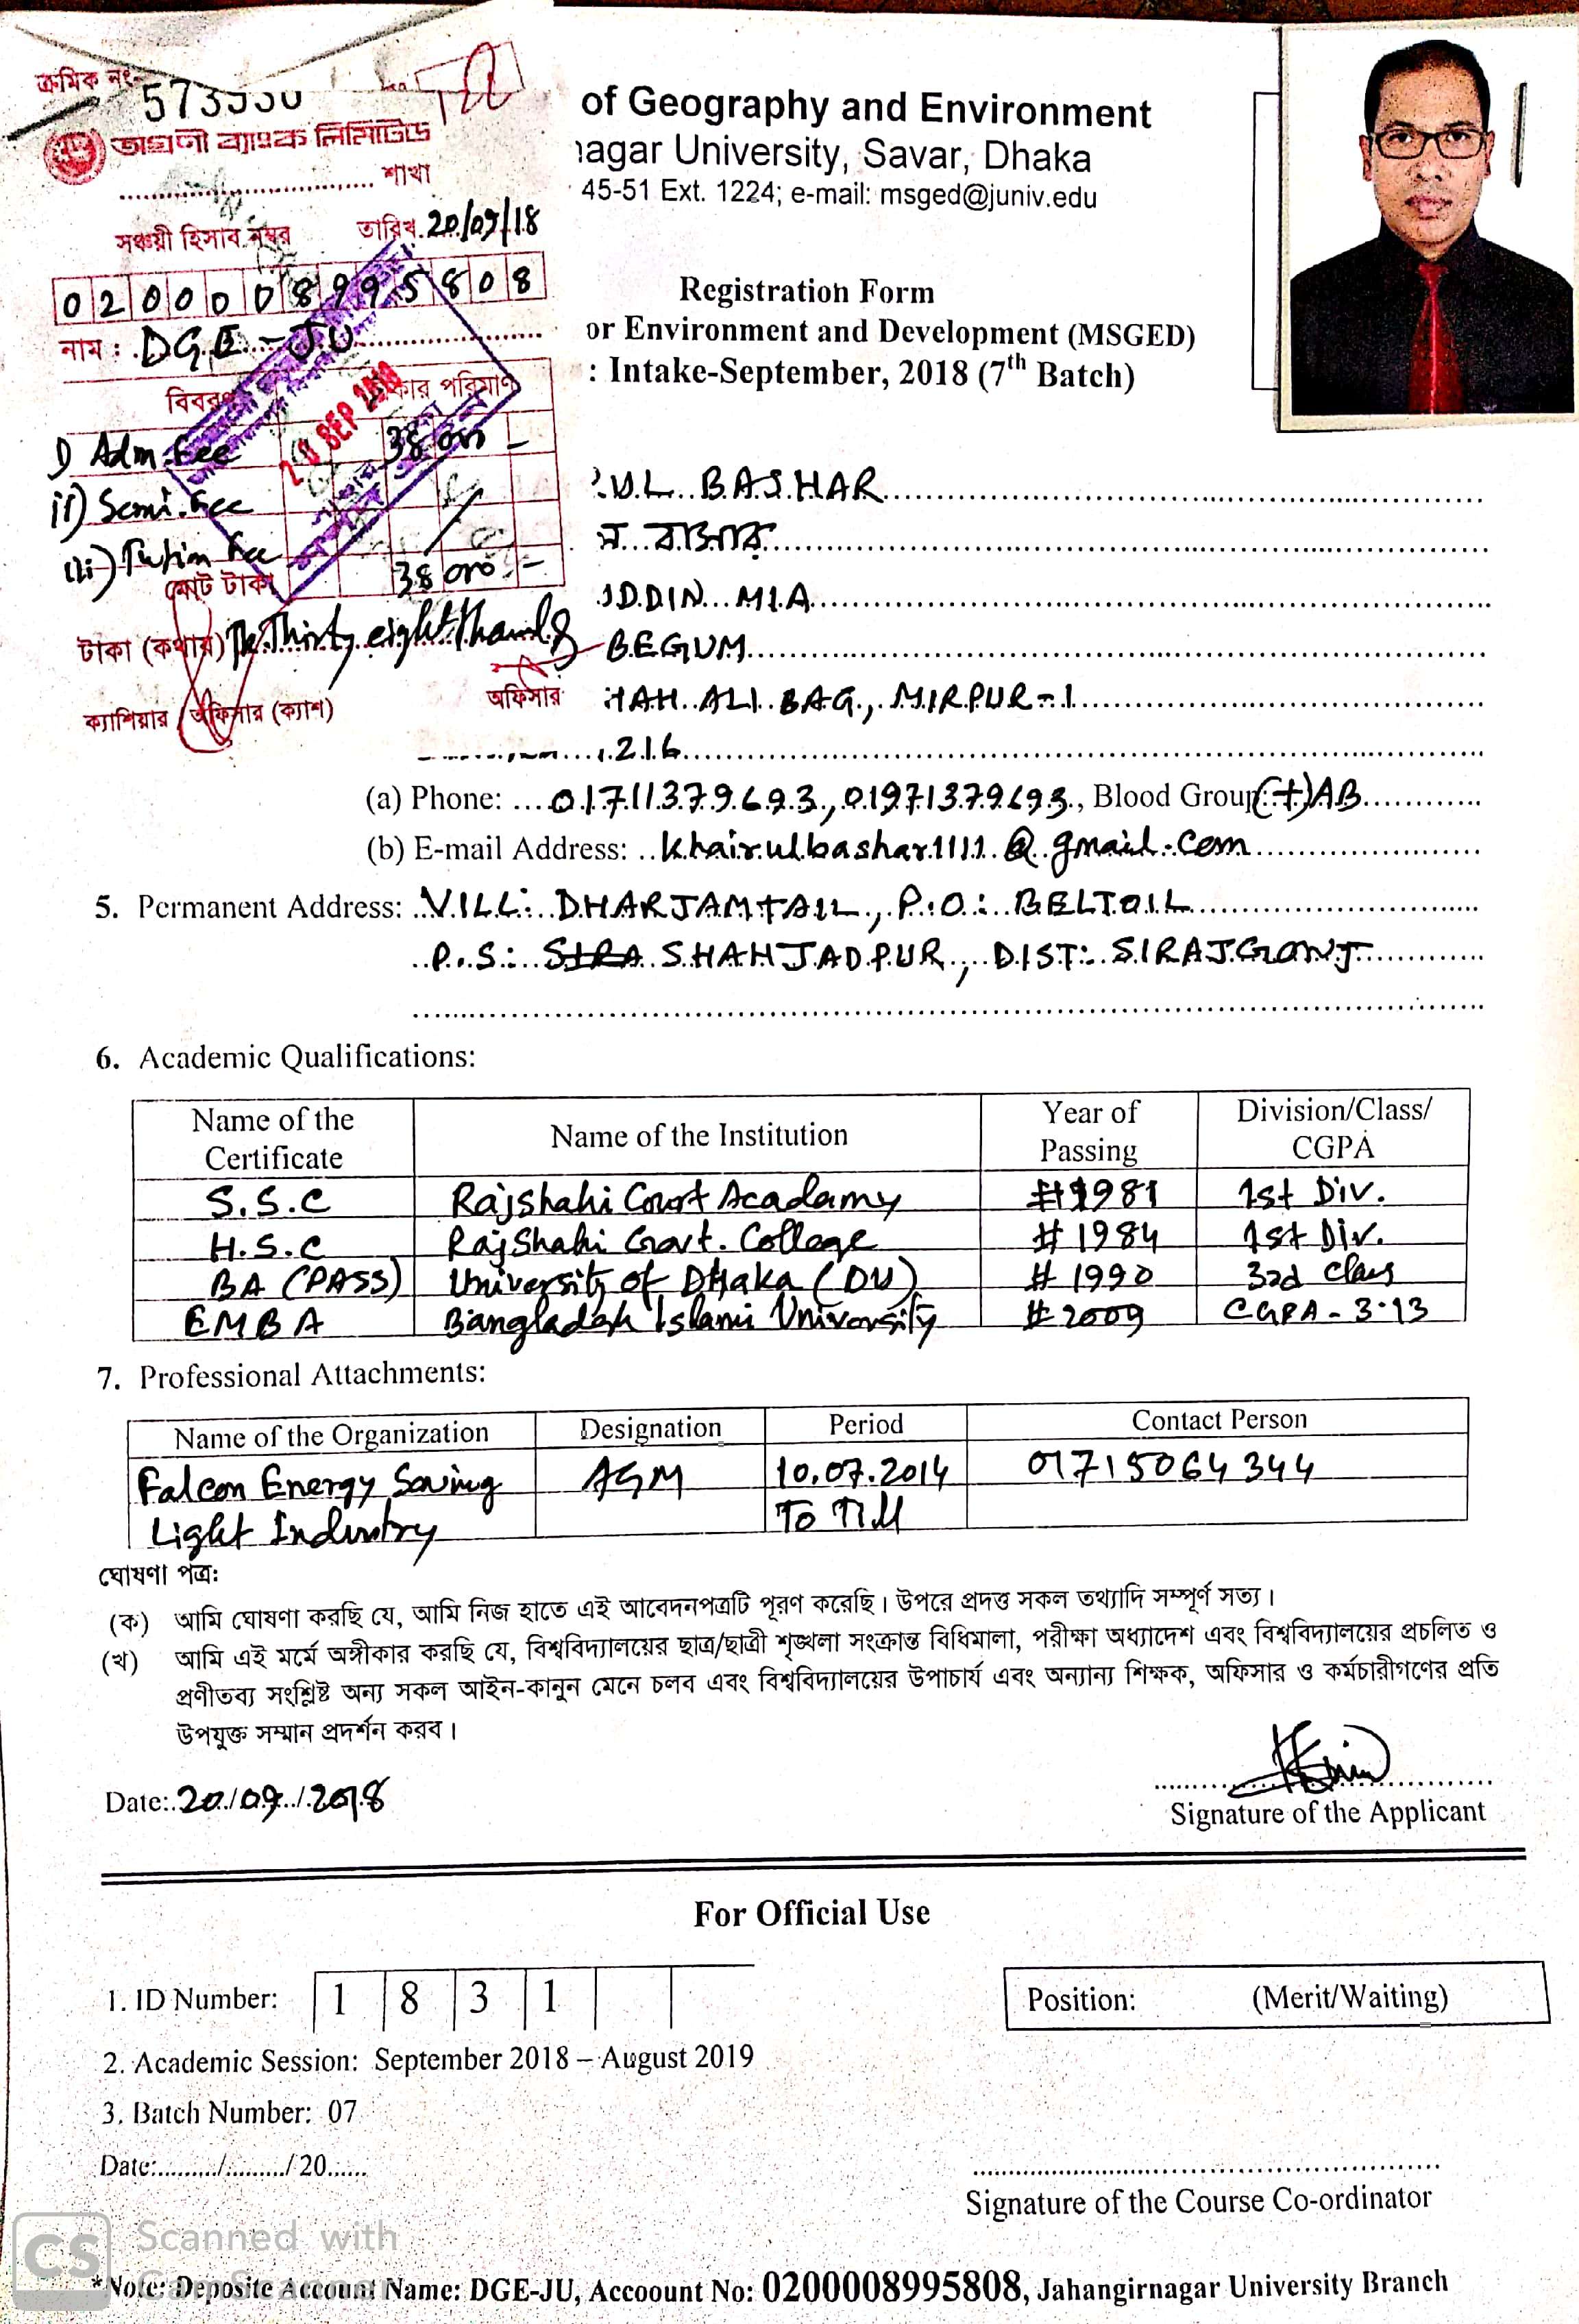 ক্রমিক নং-
অগ্রণী ব্যাংক লিমিটেড
শাখা
সঞ্চয়ী হিসাব নম্বর তারিখ 20/09/18
0200008995808
নাম : DGE-JU
i) Adm. Fee 38000 -
ii) Semi. Fee
iii) Tution Fee
মোট টাকা 38000 -
টাকা (কথায়) Tk. Thirty eight
ক্যাশিয়ার / অফিসার (ক্যাশ) অফিসার
20 SEP
of Geography and Environment
nagar University, Savar, Dhaka
45-51 Ext. 1224; e-mail: msged@juniv.edu
Registration Form
or Environment and Development (MSGED)
: Intake-September, 2018 (7th Batch)
UL BASHAR
বাসার
DDIN MIA
BEGUM
HAH ALI BAG, MIRPUR-1
1216
(a) Phone: 01711379693, 01971379693, Blood Group: (+)AB
(b) E-mail Address: khairulbashar1111@gmail.com
5. Permanent Address: VILL: DHARJAMTAIL, P.O: BELTOIL
P.S: SHAHJADPUR, DIST: SIRAJGONJ
6. Academic Qualifications:
Name of the Certificate Name of the Institution Year of Passing Division/Class/ CGPA
S.S.C Rajshahi Court Acadamy #1981 1st Div.
H.S.C Rajshahi Govt. College #1984 1st Div.
BA (PASS) University of Dhaka (DU) #1990 3rd Class
EMBA Bangladesh Islami University #2009 CGPA - 3.13
7. Professional Attachments:
Name of the Organization Designation Period Contact Person
Falcon Energy Saving AGM 10.07.2014 01715064344
Light Industry To Till
ঘোষণা পত্র:
(ক) আমি ঘোষণা করছি যে, আমি নিজ হাতে এই আবেদনপত্রটি পূরণ করেছি। উপরে প্রদত্ত সকল তথ্যাদি সম্পূর্ণ সত্য।
(খ) আমি এই মর্মে অঙ্গীকার করছি যে, বিশ্ববিদ্যালয়ের ছাত্র/ছাত্রী শৃঙ্খলা সংক্রান্ত বিধিমালা, পরীক্ষা অধ্যাদেশ এবং বিশ্ববিদ্যালয়ের প্রচলিত ও
প্রণীতব্য সংশ্লিষ্ট অন্য সকল আইন-কানুন মেনে চলব এবং বিশ্ববিদ্যালয়ের উপাচার্য এবং অন্যান্য শিক্ষক, অফিসার ও কর্মচারীগণের প্রতি
উপযুক্ত সম্মান প্রদর্শন করব।
Date: 20/09/2018
Signature of the Applicant
For Official Use
1. ID Number: 1 8 3 1 Position: (Merit/Waiting)
2. Academic Session: September 2018 – August 2019
3. Batch Number: 07
Date:........./........./20......
Signature of the Course Co-ordinator
CS Scanned with CamScanner
*Note: Deposite Account Name: DGE-JU, Accoount No: 0200008995808, Jahangirnagar University Branch